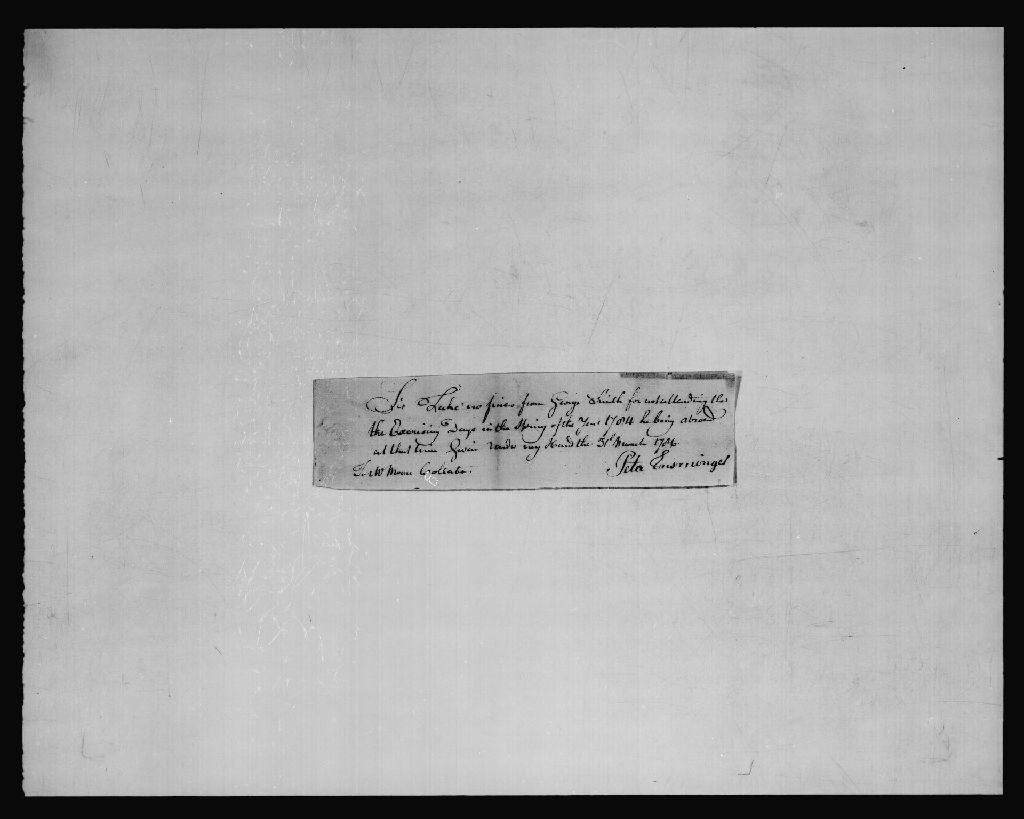 Sir Take no fines from George Smith for not attending the
the Exercising Days in the Spring of the Year 1784 he being abroad
at that time Given under my Hand the 31st March 1784
Peter Ensminger